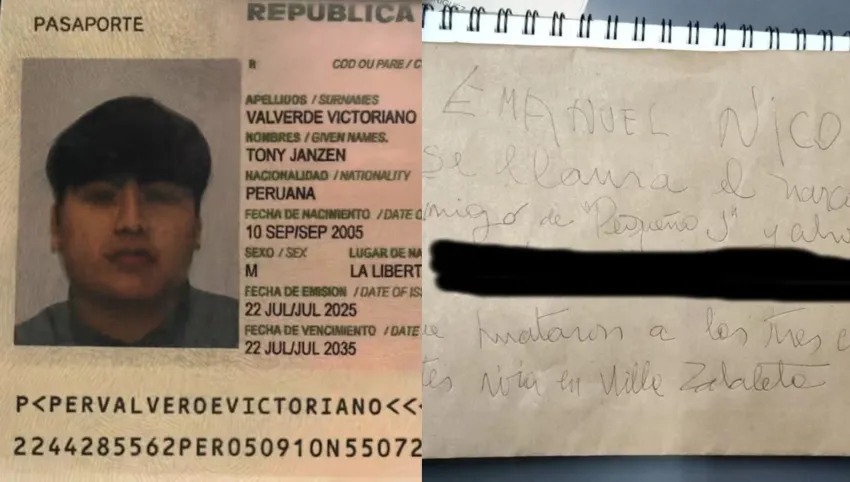 PASAPORTE
REPÚBLICA
R COD OU PARE / C
APELLIDOS / SURNAMES
VALVERDE VICTORIANO
NOMBRES / GIVEN NAMES.
TONY JANZEN
NACIONALIDAD / NATIONALITY
PERUANA
FECHA DE NACIMIENTO / DATE O
10 SEP/SEP 2005
SEXO / SEX LUGAR DE NA
M LA LIBERT
FECHA DE EMISION / DATE OF IS
22 JUL/JUL 2025
FECHA DE VENCIMIENTO / DATE
22 JUL/JUL 2035
P<PERVALVEROEVICTORIANO<<
2244285562PER050910N55072
EMANUEL NICO
se llama el narco
migo de "Pequeño J" y aho
ue mataron a los tres c
tes vivía en Villa Zabaleta